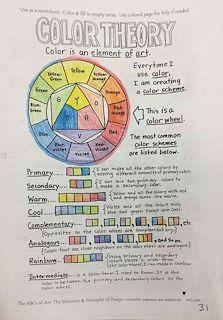 Use as a worksheet. Color & fill in empty areas. Use colored page for help if needed.
COLOR THEORY
Color is an element of art.
Everytime I
use color,
I am creating
a color scheme.
Yellow
Yellow-Green
Yellow-orange
Green
Orange
Blue-Green
Red-orange
Blue
Red
Blue-Violet
Red-Violet
Violet
Y
G
O
B
R
V
This is a
color wheel.
The most common
color schemes
are listed below.
Primary
I can make all the other colors by
mixing different amounts of primary colors.
Secondary
I can mix two primary colors to
make a secondary color.
Warm
Yellow and all the colors with red
and orange tones are warm.
Cool
Violet and all the colors with
blue and green tones are cool.
Complementary
etc
(Opposites on the color wheel are complementary.)
Analogous
and so on.
(Colors that are close neighbors on the color wheel are analogous.)
Rainbow
Using primary and secondary
colors placed in order from
the color wheel, I can make a rainbow.
Intermediate
is a color term I need to know. It is the
color in between the primary and secondary colors on the
color wheel.
The ABCs of Art: The Elements & Principles of Design
31